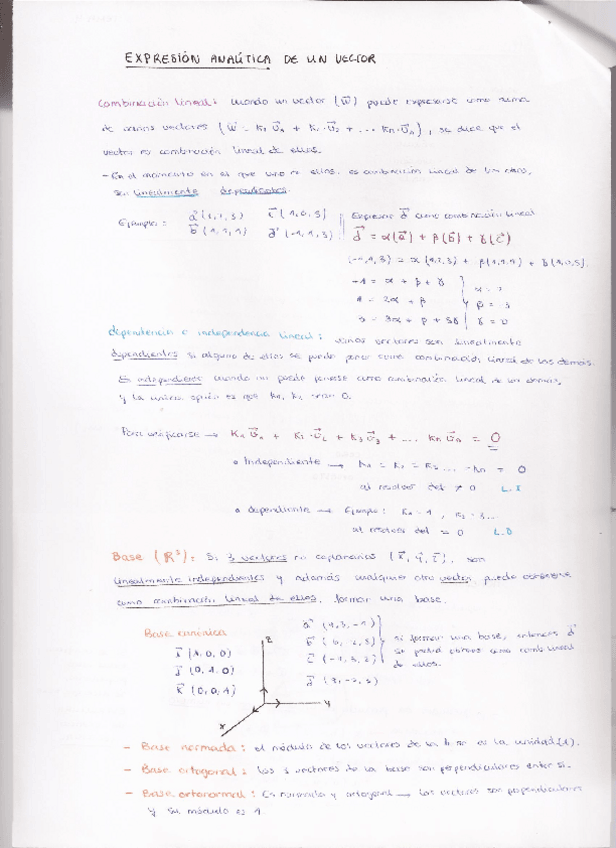 EXPRESIÓN ANALÍTICA DE UN VECTOR
Combinación lineal: cuando un vector (w⃗) puede expresarse como suma
de varios vectores (w⃗ = K₁·v⃗₁ + K₂·v⃗₂ + ... Kn·v⃗n), se dice que el
vector es combinación lineal de ellos.
- En el momento en el que uno de ellos es combinación lineal de los otros,
son linealmente dependientes.
Ejemplo: a⃗ (1,2,3) c⃗ (1,0,5) Expresar d⃗ como combinación lineal
b⃗ (1,1,1) d⃗ (-1,1,3) d⃗ = α(a⃗) + β(b⃗) + γ(c⃗)
(-1,1,3) = α(1,2,3) + β(1,1,1) + γ(1,0,5)
-1 = α + β + γ
1 = 2α + β β = -3
3 = 3α + β + 5γ γ = 0
Dependencia e independencia lineal: varios vectores son linealmente
dependientes si alguno de ellos se puede poner como combinación lineal de los demás.
Es independiente cuando no puede ponerse como combinación lineal de los demás,
y la única opción es que K₁, K₂ sean 0.
Para verificarse → K₁v⃗₁ + K₂·v⃗₂ + K₃v⃗₃ + ... Kn v⃗n = 0
• Independiente → K₁ = K₂ = K₃ ... Kn = 0
al resolver det ≠ 0 L.I
• dependiente → Ejemplo: K₁ = 1, K₂ = 3...
al resolver det = 0 L.D
Base (R³): Si 3 vectores no coplanarios (x⃗, y⃗, z⃗), son
linealmente independientes y además cualquier otro vector, puede
como combinación lineal de ellos, forman una base.
Base canónica
i⃗ (1,0,0)
j⃗ (0,1,0)
k⃗ (0,0,1)
z
y
x
a⃗ (1,3,-1)
c⃗ (-1,3,2)
si forman una base, entonces d⃗
se podrá como comb. lineal
de ellos.
- Base normada: el módulo de los vectores de la base es la unidad (1).
- Base ortogonal: los 3 vectores de la base son perpendiculares entre sí.
- Base ortonormal: Es normada y ortogonal → los vectores son perpendiculares
y su módulo es 1.